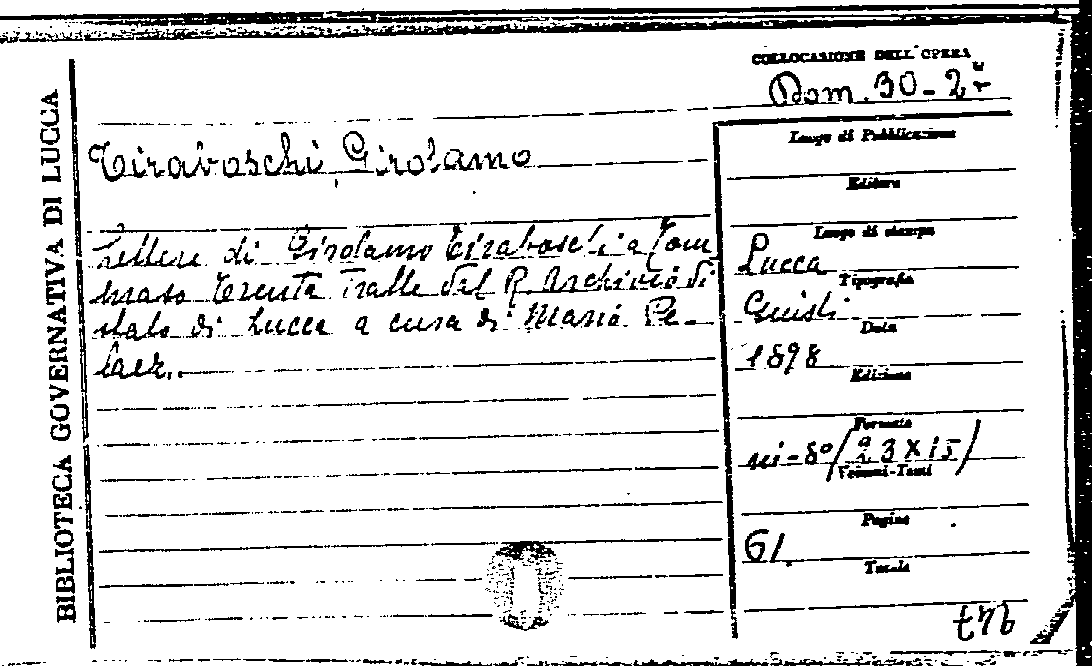 BIBLIOTECA GOVERNATIVA DI LUCCA
COLLOCAZIONE DELL'OPERA
Dom. 30-2
Tiraboschi Girolamo
Lettere di Girolamo Tiraboschi a Tom
maso Trenta Tratte dal R. Archivio di
stato di Lucca a cura di Mario Pe-
laez.
Luogo di Pubblicazione
Editore
Luogo di stampa
Lucca
Tipografia
Giusti
Data
1898
Edizione
Formato
in-8°/23X15/
Volumi-Tomi
Pagine
61.
Tavole